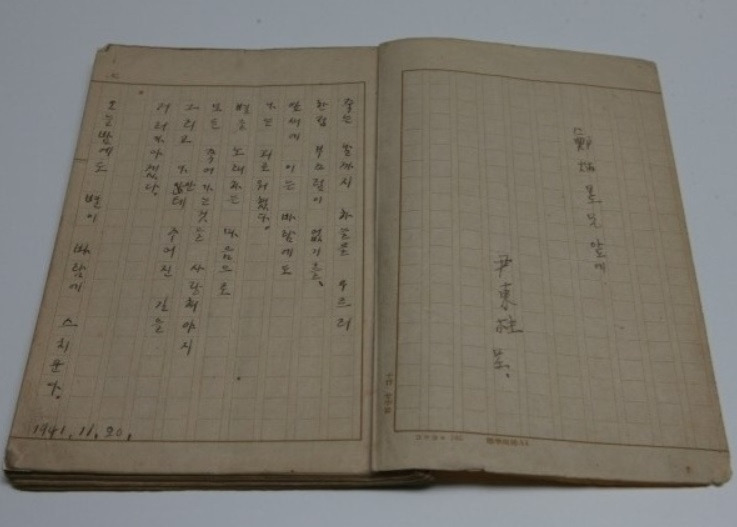 鄭炳昱兄 앞에
尹東柱 呈.
죽는 날까지 하늘을 우르러
한점 부끄럼이 없기를,
잎새에 이는 바람에도
나는 괴로워했다.
별을 노래하는 마음으로
모든 죽어가는것을 사랑해야지
그리고 나안테 주어진 길을
거러가야겠다.
오늘밤에도 별이 바람에 스치운다.
1941.11.20.